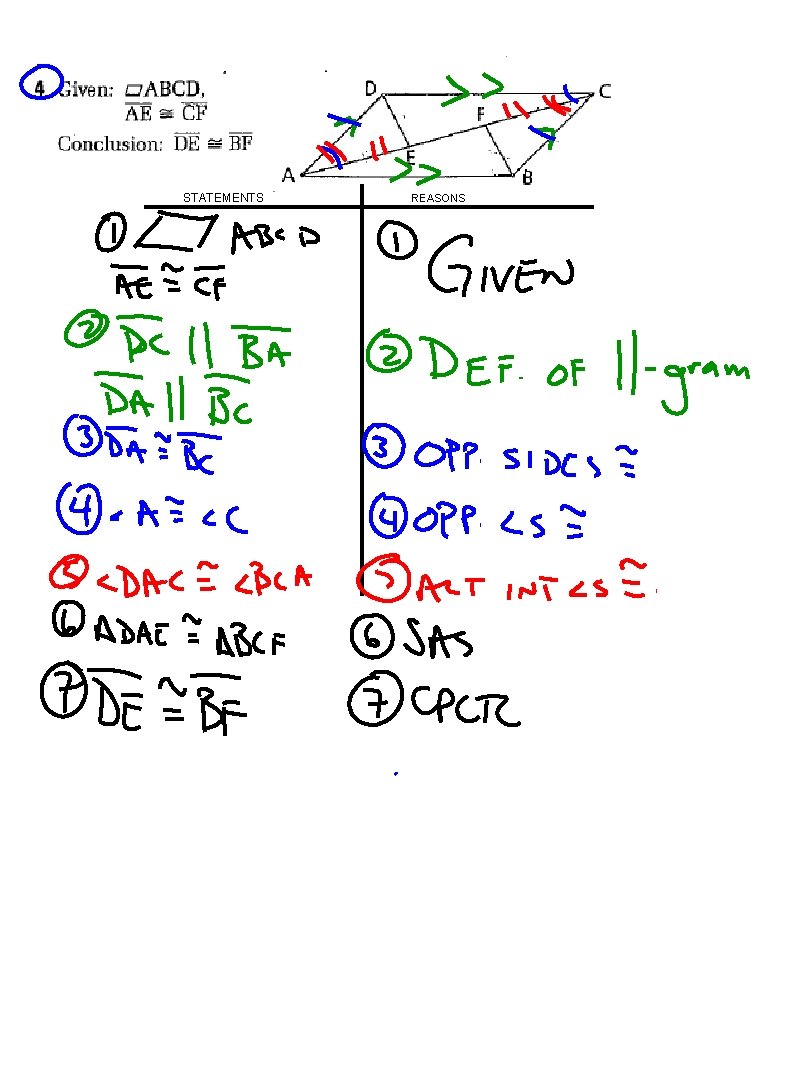 4 Given: ▱ABCD,
AE ≅ CF
Conclusion: DE ≅ BF
D
C
F
E
A
B
STATEMENTS REASONS
① ▱ ABCD ① GIVEN
AE ≅ CF
② DC || BA ② DEF. OF ||-gram
DA || BC
③ DA ≅ BC ③ OPP. SIDES ≅
④ <A ≅ <C ④ OPP. <S ≅
⑤ <DAC ≅ <BCA ⑤ ALT INT <S ≅.
⑥ ΔDAE ≅ ΔBCF ⑥ SAS
⑦ DE ≅ BF ⑦ CPCTC